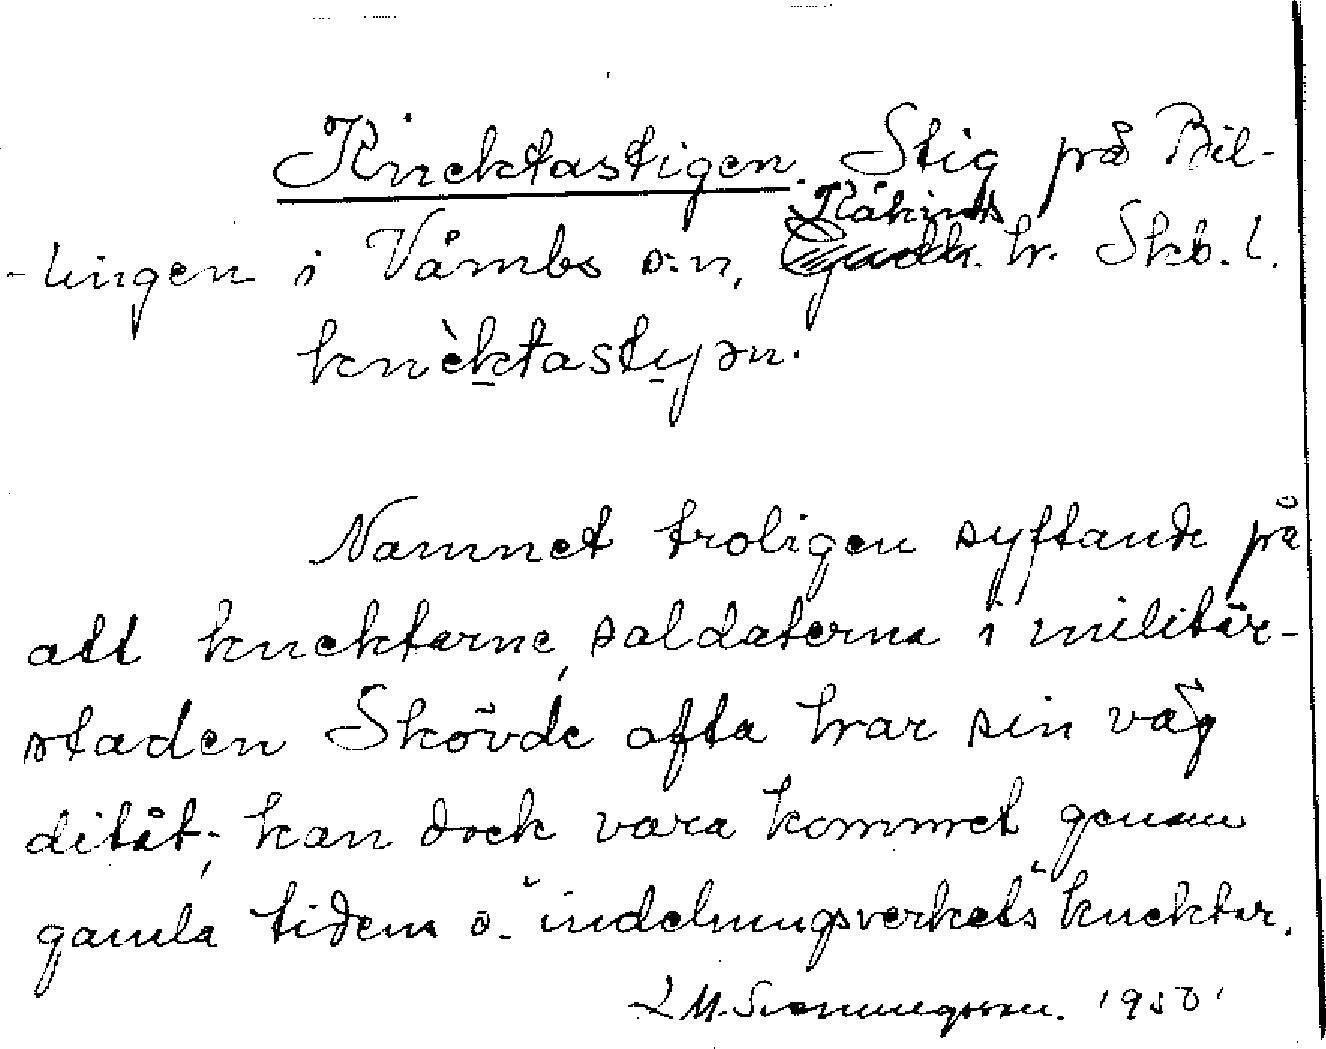 Knektastigen. Stig på Bil-
Kåkinds
-lingen i Våmbs s:n, Gudh. hr. Skb. l.
knèktastyən.
Namnet troligen syftande på
att knektarne, soldaterna i militär-
staden Skövde ofta har sin väg
ditåt; kan dock vara kommet genom
gamla tidens o. "indelningsverkets" knektar.
L M. Svenungsson. 1950